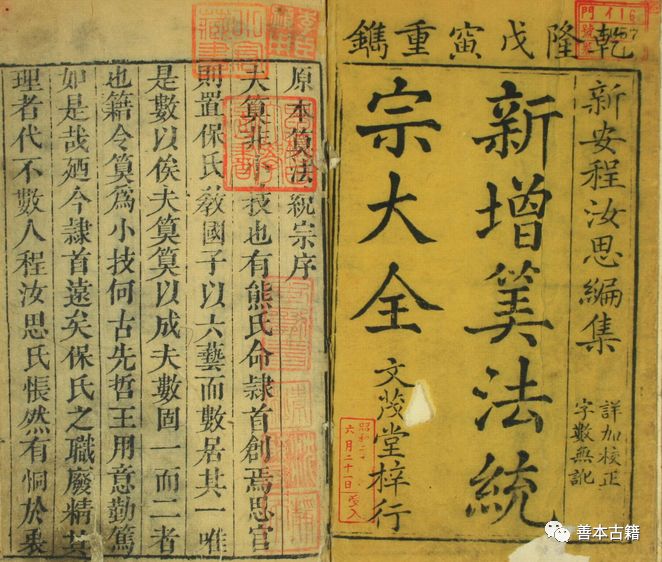 乾隆戊寅重鐫
新安程汝思編集
詳加校正
字數無訛
新增筭法統
宗大全
文茂堂梓行
六月二十日
原本筭法統宗序
夫算非技也有熊氏命隸首創焉思官
則置保氏教國子以六藝而數居其一唯
是數以俟夫算算以成夫數固一而二者
也籍令算爲小技何古先哲王用意勤篤
如是哉廼今隸首遠矣保氏之職廢精其
理者代不數人程汝思氏悵然有恫於衷
善本古籍